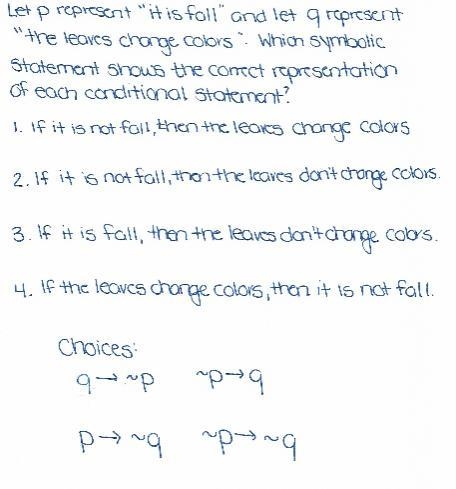 Let p represent "it is fall" and let q represent
"the leaves change colors". Which symbolic
statement shows the correct representation
of each conditional statement?
1. If it is not fall, then the leaves change colors
2. If it is not fall, then the leaves don't change colors.
3. If it is fall, then the leaves don't change colors.
4. If the leaves change colors, then it is not fall.
Choices:
q→~p ~p→q
p→~q ~p→~q